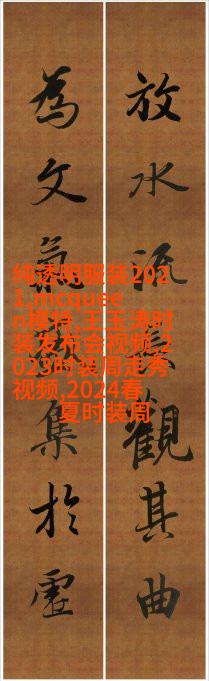 放水流觀其曲
為文氣集於虛
纯透明服装202
1,mcquee
n模特,王玉涛时
装发布会视频,2
023时装周走秀
视频,2024春
夏时装周